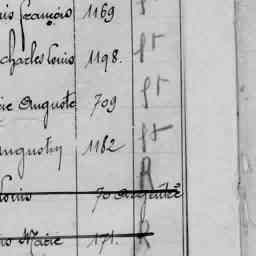 uis françois 1169 ft
charles louis 1198. ft
rie Auguste 709 ft
Augustin 1182 ft
R
louis 70
is Marie 171. R